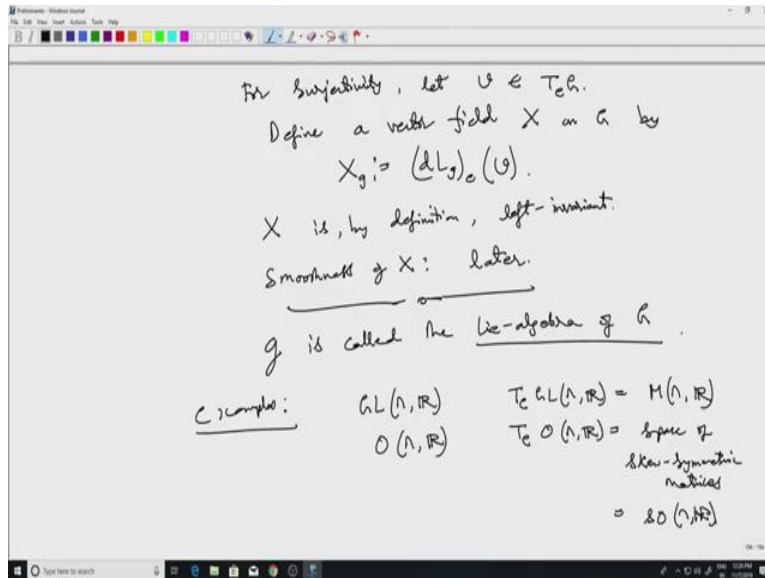 Preliminaries - Windows Journal
File Edit View Insert Actions Tools Help
For Surjectivity, let v ∈ TeG.
Define a vector field X on G by
Xg := (dLg)e (v).
X is, by definition, left-invariant.
Smoothness of X: later.
g is called the Lie-algebra of G.
Examples: GL(n, R) Te GL(n, R) = M(n, R)
O(n, R) Te O(n, R) = space of
skew-symmetric
matrices
= so(n, R)
Type here to search